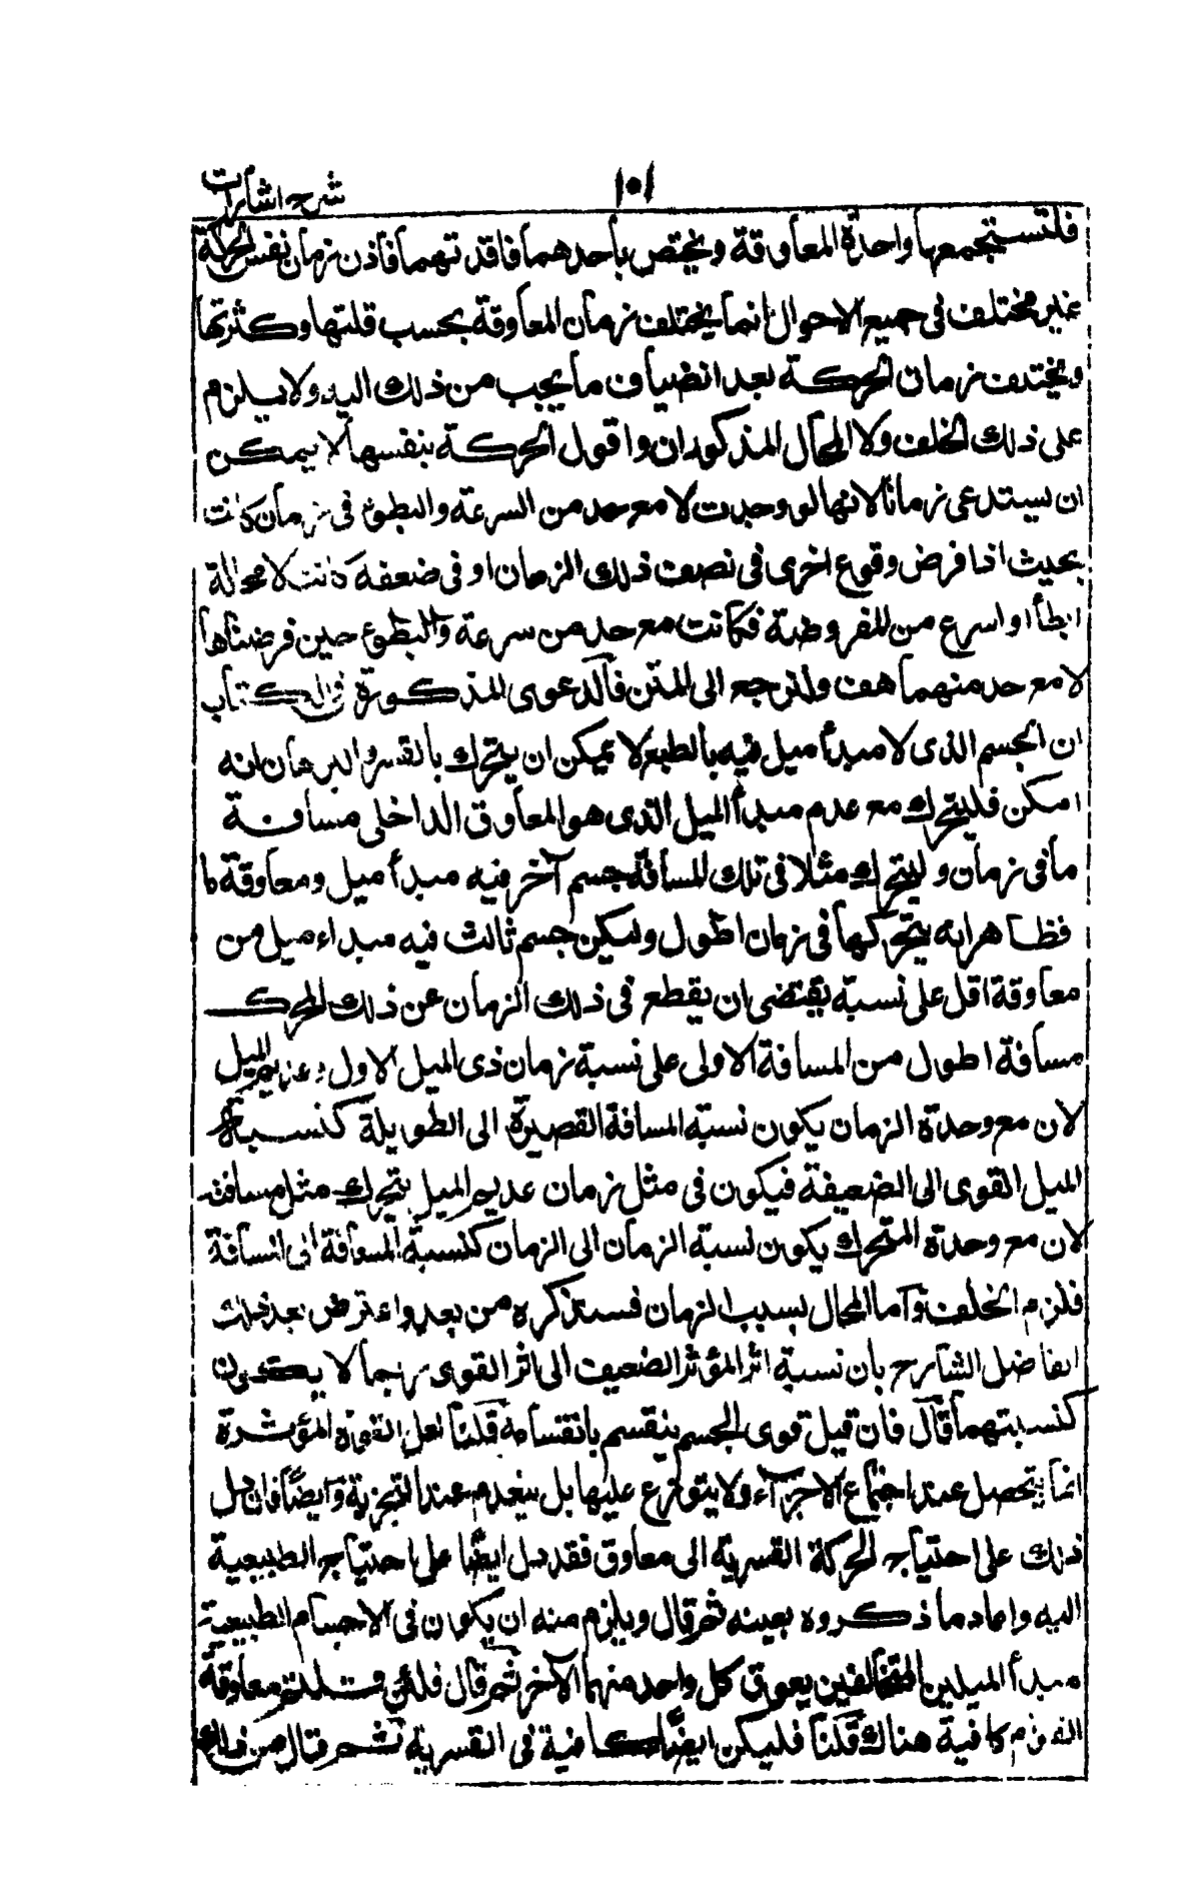 شرح اشارات
١٥١
فلتستجمعها واحدة المعاوقة ويختص بأحدهما فاقدتهما فأذن زمان نفس الحركة
غير مختلف في جميع الاحوال انما يختلف زمان المعاوقة بحسب قلتها وكثرتها
ويختلف زمان الحركة بعد انضياف ما يجب من ذلك اليه ولا يلزم
على ذلك الخلف ولا المحال المذكوران واقول الحركة بنفسها لا يمكن
ان يستدعي زمانا لانها لو وجدت لا مع حد من السرعة والبطوء في زمان كانت
بحيث اذا فرض وقوع اخرى في نصف ذلك الزمان او في ضعفه كانت لا محالة
ابطأ او اسرع من المفروضة فكانت مع حد من سرعة والبطوء حين فرضناها
لا مع حد منهما هف ولنرجع الى المتن فالدعوى المذكورة في الكتاب
ان الجسم الذي لا مبدأ ميل فيه بالطبع لا يمكن ان يتحرك بالقسر والبرهان انه
امكن فليتحرك مع عدم مبدأ الميل الذي هو المعاوق الداخلي مسافة
ما في زمان وليتحرك مثلا في تلك المسافة جسم آخر فيه مبدأ ميل ومعاوقة ما
فظاهر انه يتحركها في زمان اطول وليكن جسم ثالث فيه مبداء ميل من
معاوقة اقل على نسبة يقتضي ان يقطع في ذلك الزمان عن ذلك المحرك
مسافة اطول من المسافة الاولى على نسبة زمان ذي الميل الاول وعديم الميل
لان مع وحدة الزمان يكون نسبة المسافة القصيرة الى الطويلة كنسبة
الميل القوى الى الضعيفة فيكون في مثل زمان عديم الميل يتحرك مثل مسافته
لان مع وحدة المتحرك يكون نسبة الزمان الى الزمان كنسبة المسافة الى المسافة
فلزم الخلف وآما المحال بسبب الزمان فسنذكره من بعد واعترض بعد ذلك
الفاضل الشارح بان نسبة اثر المؤثر الضعيف الى اثر القوى ربما لا يكون
كنسبتهما قال فان قيل قوى الجسم ينقسم بانقسامه قلنا لعل القوة المؤثرة
انما يتحصل عند اجتماع الاجزآء ولا يتوزع عليها بل ينعدم عند التجزية وايضا فان دل
ذلك على احتياج الحركة القسرية الى معاوق فقد دل ايضا على احتياج الطبيعية
اليه واعاد ما ذكروه بعينه ثم قال ويلزم منه ان يكون في الاجسام الطبيعية
مبدأ الميلين المتخالفين يعوق كل واحد منهما الآخر ثم قال فلئن قلتم معاوقة
القوام كافية هناك قلنا فليكن ايضا كافية في القسرية ثم قال من ذلك